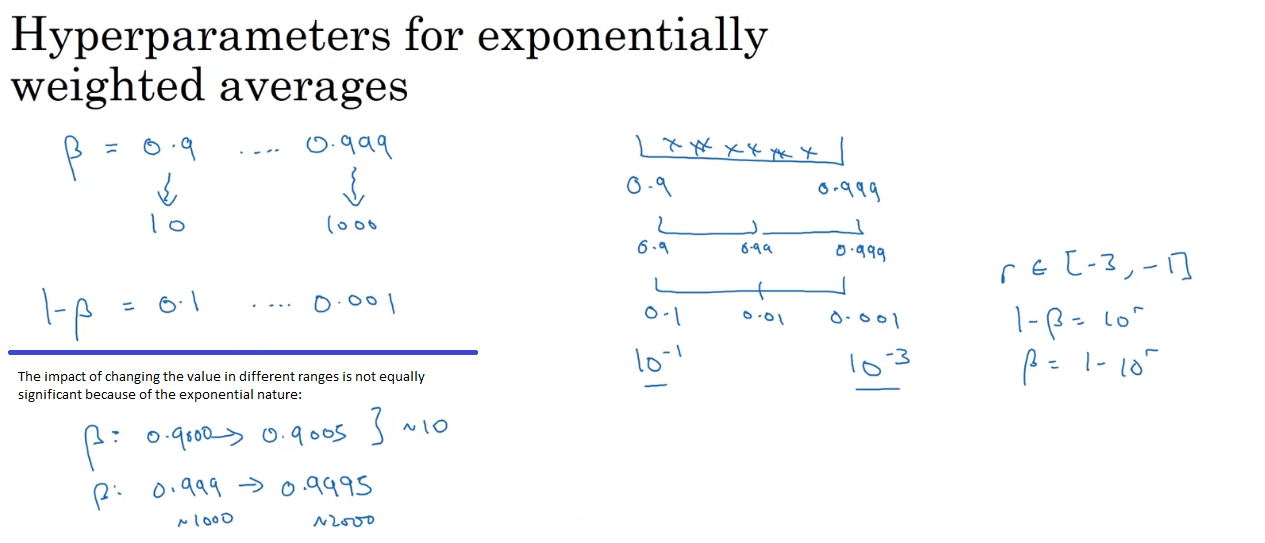 Hyperparameters for exponentially
weighted averages
β = 0.9 .... 0.999
10 1000
1-β = 0.1 .... 0.001
The impact of changing the value in different ranges is not equally
significant because of the exponential nature:
β: 0.9000 → 0.9005 } ~10
β: 0.999 → 0.9995
~1000 ~2000
x x x x x x
0.9 0.999
0.9 0.99 0.999
0.1 0.01 0.001
10⁻¹ 10⁻³
r ∈ [-3, -1]
1-β = 10ʳ
β = 1-10ʳ